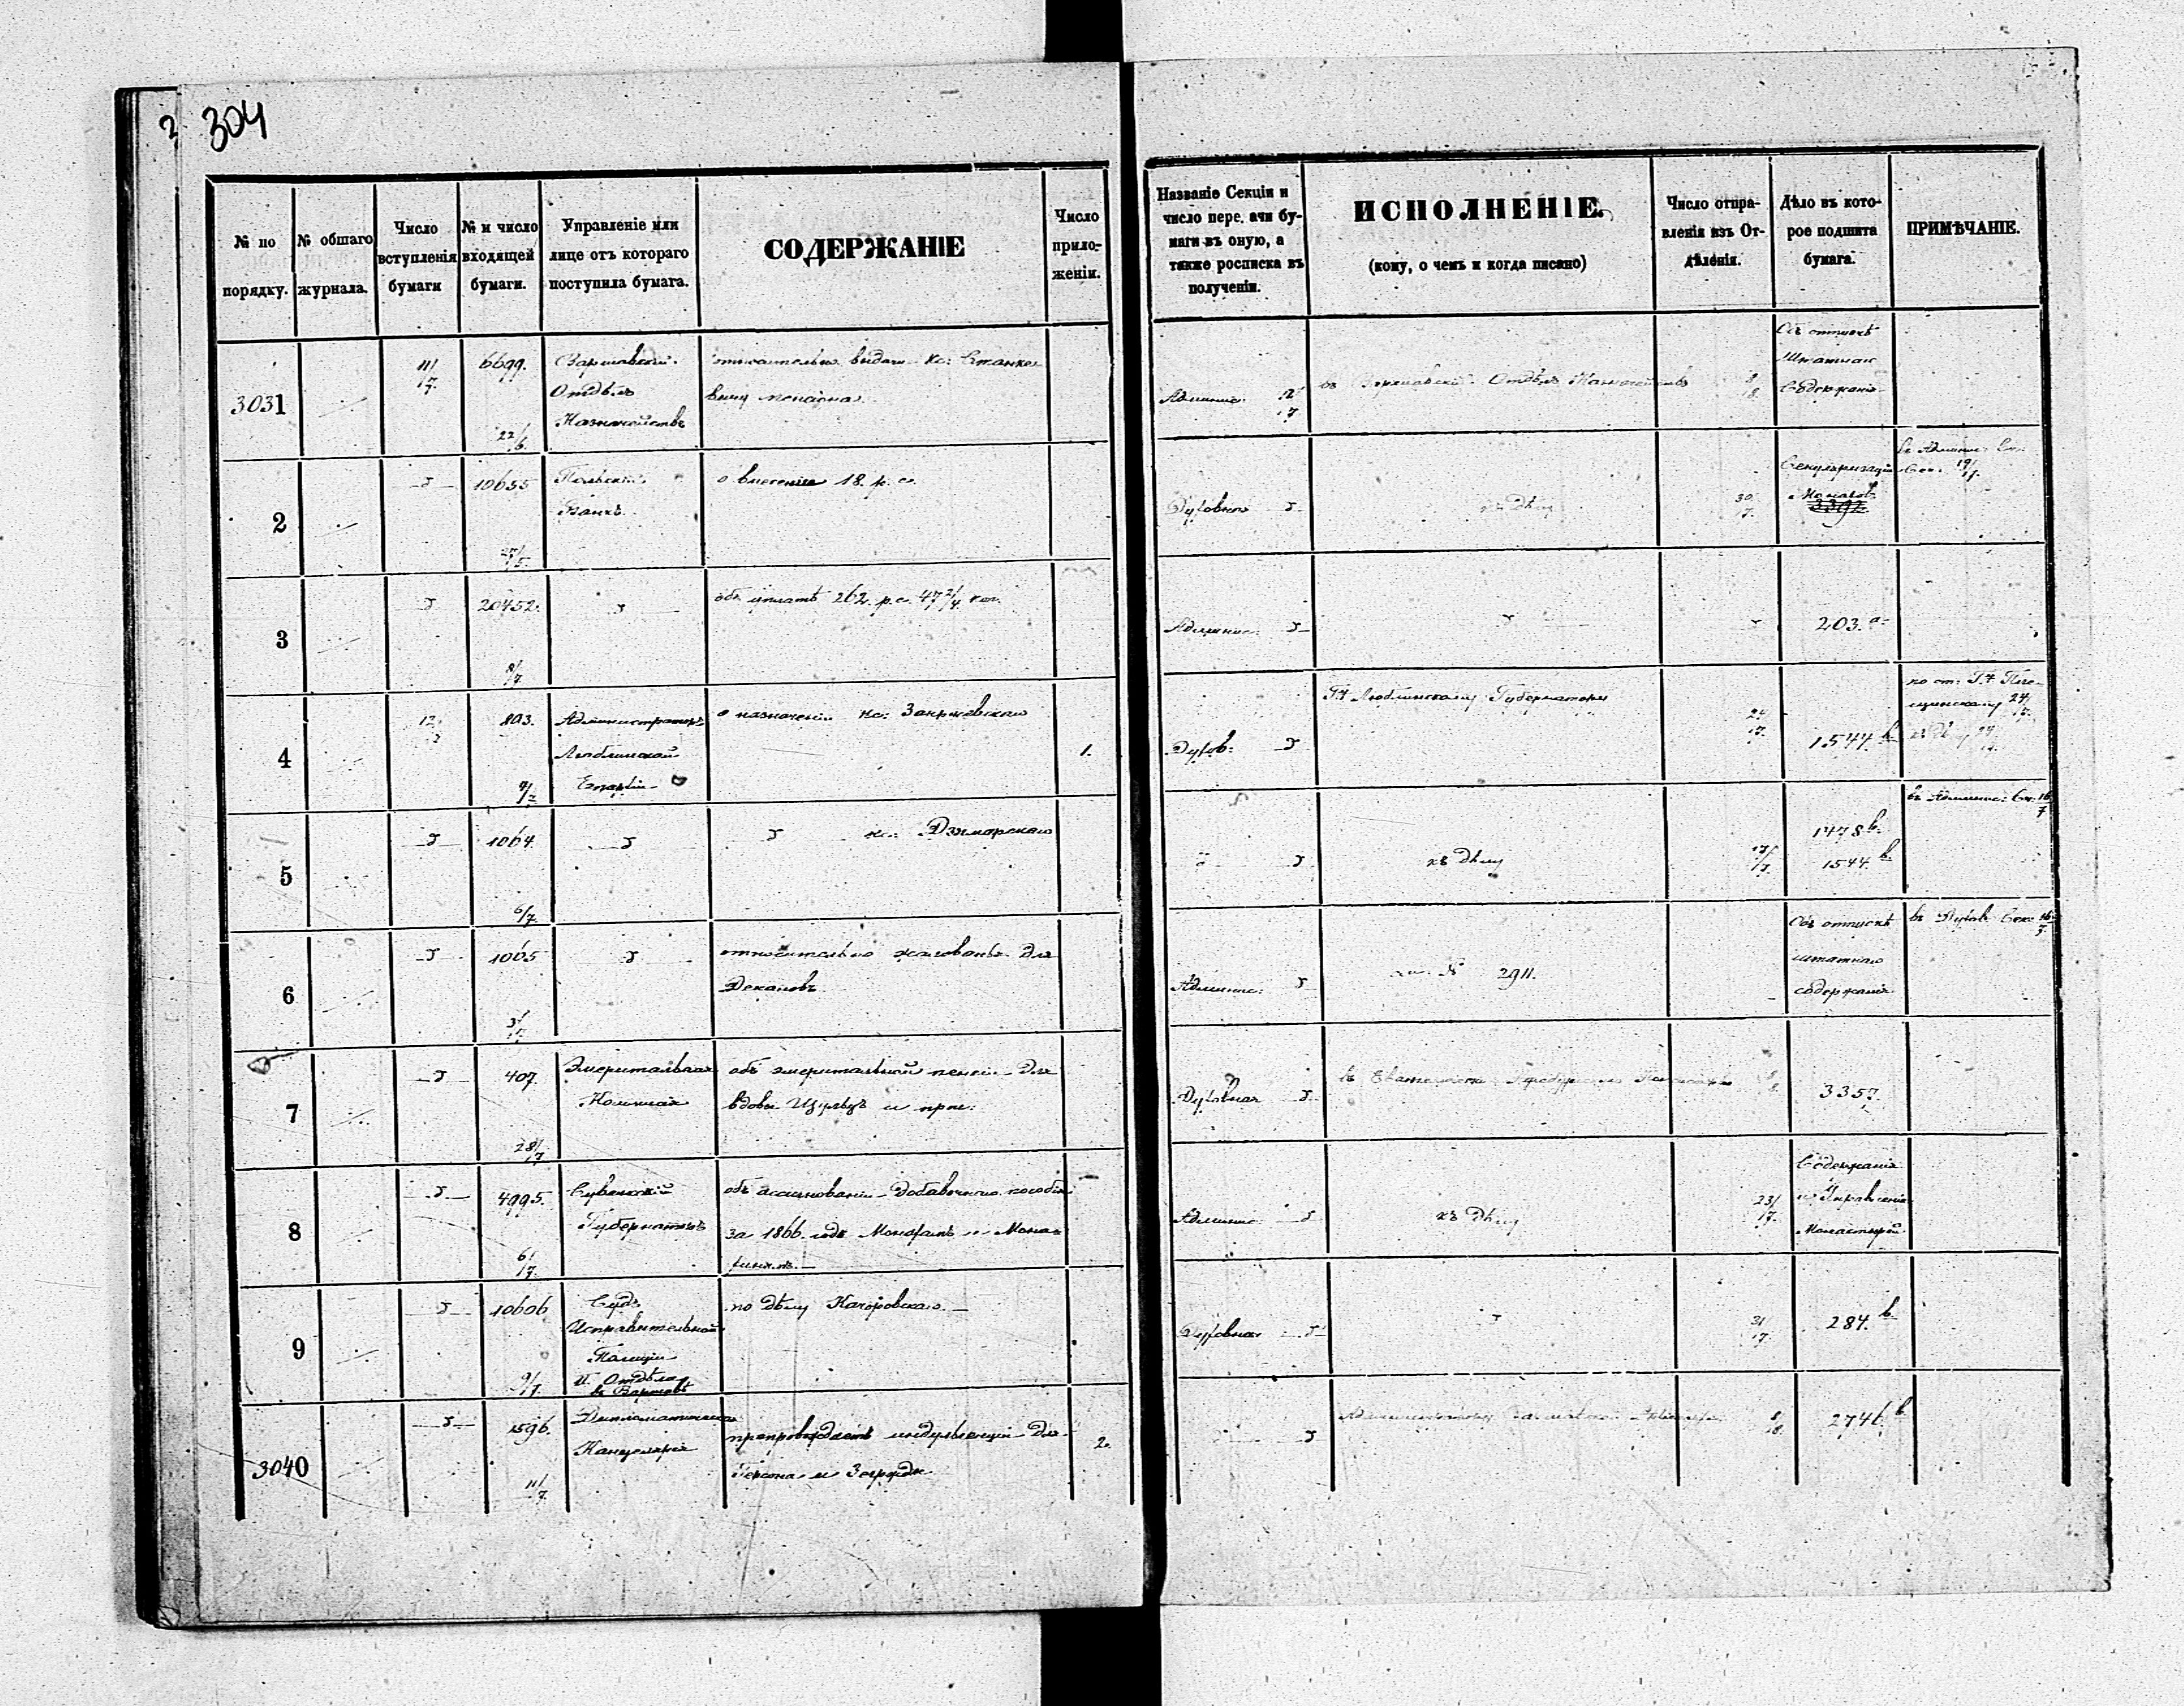 304
№ по порядку.
№ общаго журнала.
Число вступленія бумаги
№ и число входящей бумаги.
Управленіе или лице отъ котораго поступила бумага.
СОДЕРЖАНІЕ
Число прило-женіи.
Названіе Секціи и число пере. ачи бу-маги въ оную, а также росписка въ полученіи.
ИСПОЛНЕНІЕ.
(кому, о чемъ и когда писано)
Число отпра-вленія изъ От-дѣленія.
Дѣло въ кото-рое подшита бумага.
ПРИМѢЧАНІЕ.
3031
11/7.
6699.
22/6.
Варшавскій
Отдѣлъ
Казначейства
относительно выдачи кс: Станке-
вичу пенсіона.
Админис:
въ Варшавскій Отдѣлъ Казначейства
8/8.
Объ отпускѣ
Штатнаго
Содержанія
2
10655
27/5.
Польскій
Банкъ.
о внесеніи 18. р. с.
Духовная
къ дѣлу
30/7.
Секуляризаціи
3392.
въ Админис:
Сек. 19/7.
3
20452.
8/7.
объ уплатѣ 262. р. с. 47 2/4 коп.
Админис:
203. а
4
12/7
893.
4/7
Администраторъ
Люблинской
Епархіи
о назначеніи кс: Закржевскаго
1.
Духов:
Гну Люблинскому Губернатору
24/7.
1544. в
по ст: Гну Пого-
щинскому 24/7.
5
1064.
6/7.
кс: Дзяморскаго
къ дѣлу
17/7.
1478 в.
1544. в.
въ Админис: Сек: 16/7
6
1065
3/7.
относительно жалованья для
Декановъ
Админис:
№ 2911.
Объ отпускѣ
штатнаго
содержанія
въ Духов: Сек: 16/7.
7
407.
28/7
Эмеритальная
Коммисія
объ эмеритальной пенсіи для
вдовы Шульцъ и проч:
Духовная
8/8.
3357.
8
4995.
6/7.
Сувалкскій
Губернаторъ
объ ассигнованіи добавочнаго пособія
за 1866. годъ Монахамъ и Мона-
хинямъ.
Админис:
къ дѣлу
23/7.
Содержанія
и Управленія
Монастырей
9
10606
9/7.
Судъ
Исправительной
Полиціи
II. Отдѣла
въ Варшавѣ
по дѣлу Качоровскаго.
Духовная
31/7.
284. в
3040
1596.
11/7.
Дипломатическая
Канцелярія
препровождаетъ индульгенціи для
Герсона и
2.
8/8.
2746. в